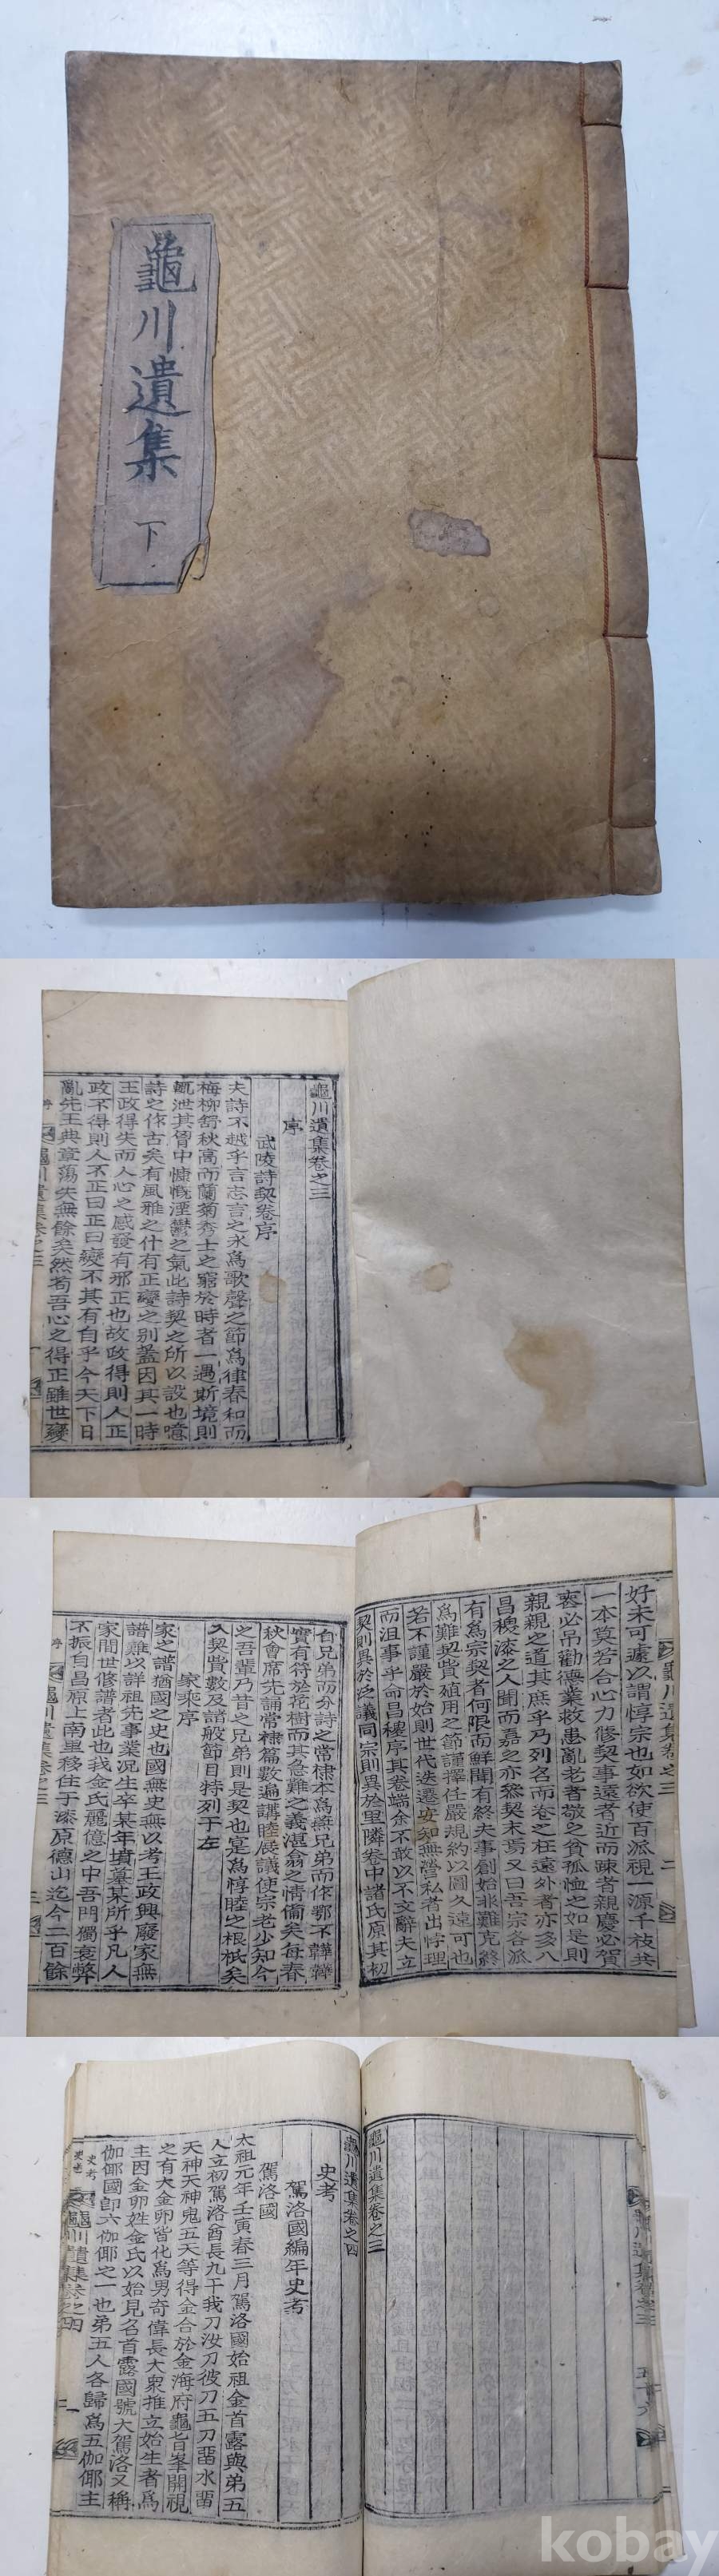 龜川遺集 下
龜川遺集卷之三
序
武陵詩契卷序
夫詩不越乎言志言之永爲歌聲之節爲律春和而
梅柳舒秋高而蘭菊秀士之窮於時者一遇斯境則
輒泄其胷中慷慨湮鬱之氣此詩契之所以設也噫
詩之作古矣有風雅之什有正變之别盖因其一時
王政得失而人心之感發有邪正也故政得則人正
政不得則人不正曰正曰變不其有自乎今天下日
亂先王典章蕩失無餘矣然苟吾心之得正雖世變
序
龜川遺集卷之三
一
龜川遺集卷之三
二
好未可遽以謂惇宗也如欲使百派視一源千枝共
一本莫若合心力修契事遠者近而疎者親慶必賀
喪必吊勸德業救患亂老者敬之貧孤恤之如是則
親親之道其庶乎乃列名而卷之在遠外者亦多八
昌稷漆之人聞而嘉之亦叅契末焉又曰吾宗各派
有爲宗契者何限而鮮聞有終夫事創始非難克終
爲難契貲殖用之節謹擇任嚴規約以圖久遠可也
若不謹嚴於始則世代迭遷安知無營私者出悖理
而沮事乎命昌稷序其卷端余不敢以不文辭夫立
契則異於之議同宗則異於里隣卷中諸氏原其初
自兄弟而分詩之常棣本爲燕兄弟而作鄂不韡韡
實有符於花樹而其急難之義湛翕之情備矣每春
秋會席先誦常棣篇數遍講睦展議使宗老少知今
之吾輩乃昔之兄弟則是契也寔爲惇睦之根柢矣
入契貲數及諸般節目特列于左
家乘序
家之譜猶國之史也國無史無以考王政興廢家無
譜難以詳祖先事業况生卒某年墳墓某所乎凡人
家間世修譜者此也我金氏麗億之中吾門獨衰弊
不振自昌原上南里移住于漆原德山迄今二百餘
序
龜川遺集卷之三
三
龜川遺集卷之三
五十六
龜川遺集卷之三
龜川遺集卷之四
史考
駕洛國編年史考
駕洛國
太祖元年壬寅春三月駕洛國始祖金首露與弟五
人立初駕洛酋長九干我刀汝刀彼刀五刀留水留
天神天神鬼五天等得金合於金海府龜旨峯開視
之有大金卵皆化爲男奇偉長大衆推立始生者爲
主因金卵姓金氏以始見名首露國號大駕洛又稱
伽倻國卽六伽倻之一也弟五人各歸爲五伽倻主
史考
龜川遺集卷之四
一
kobay